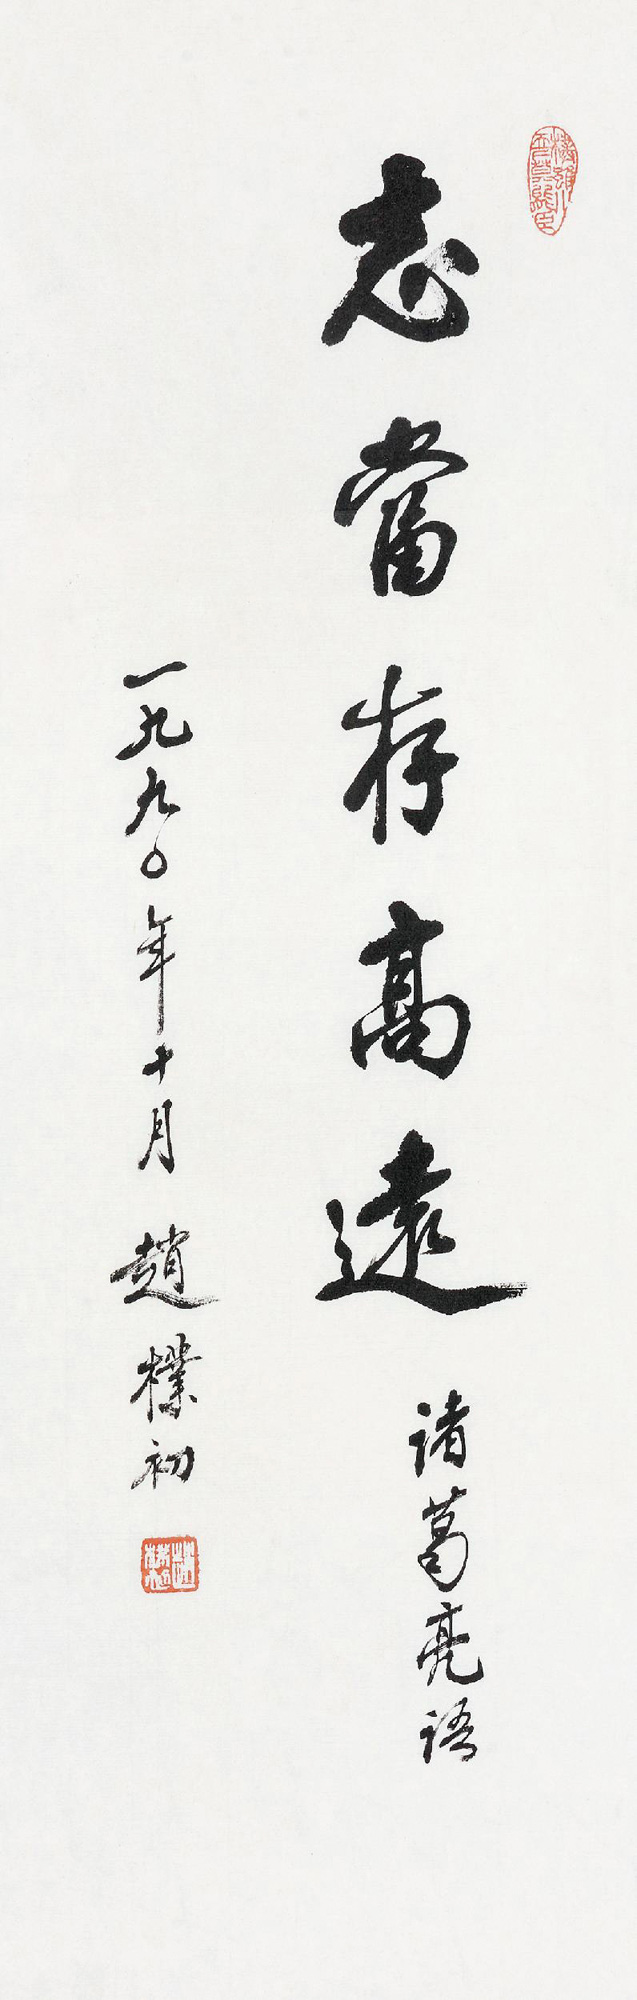 志當存高遠
诸葛亮语
一九九〇年十月
趙樸初